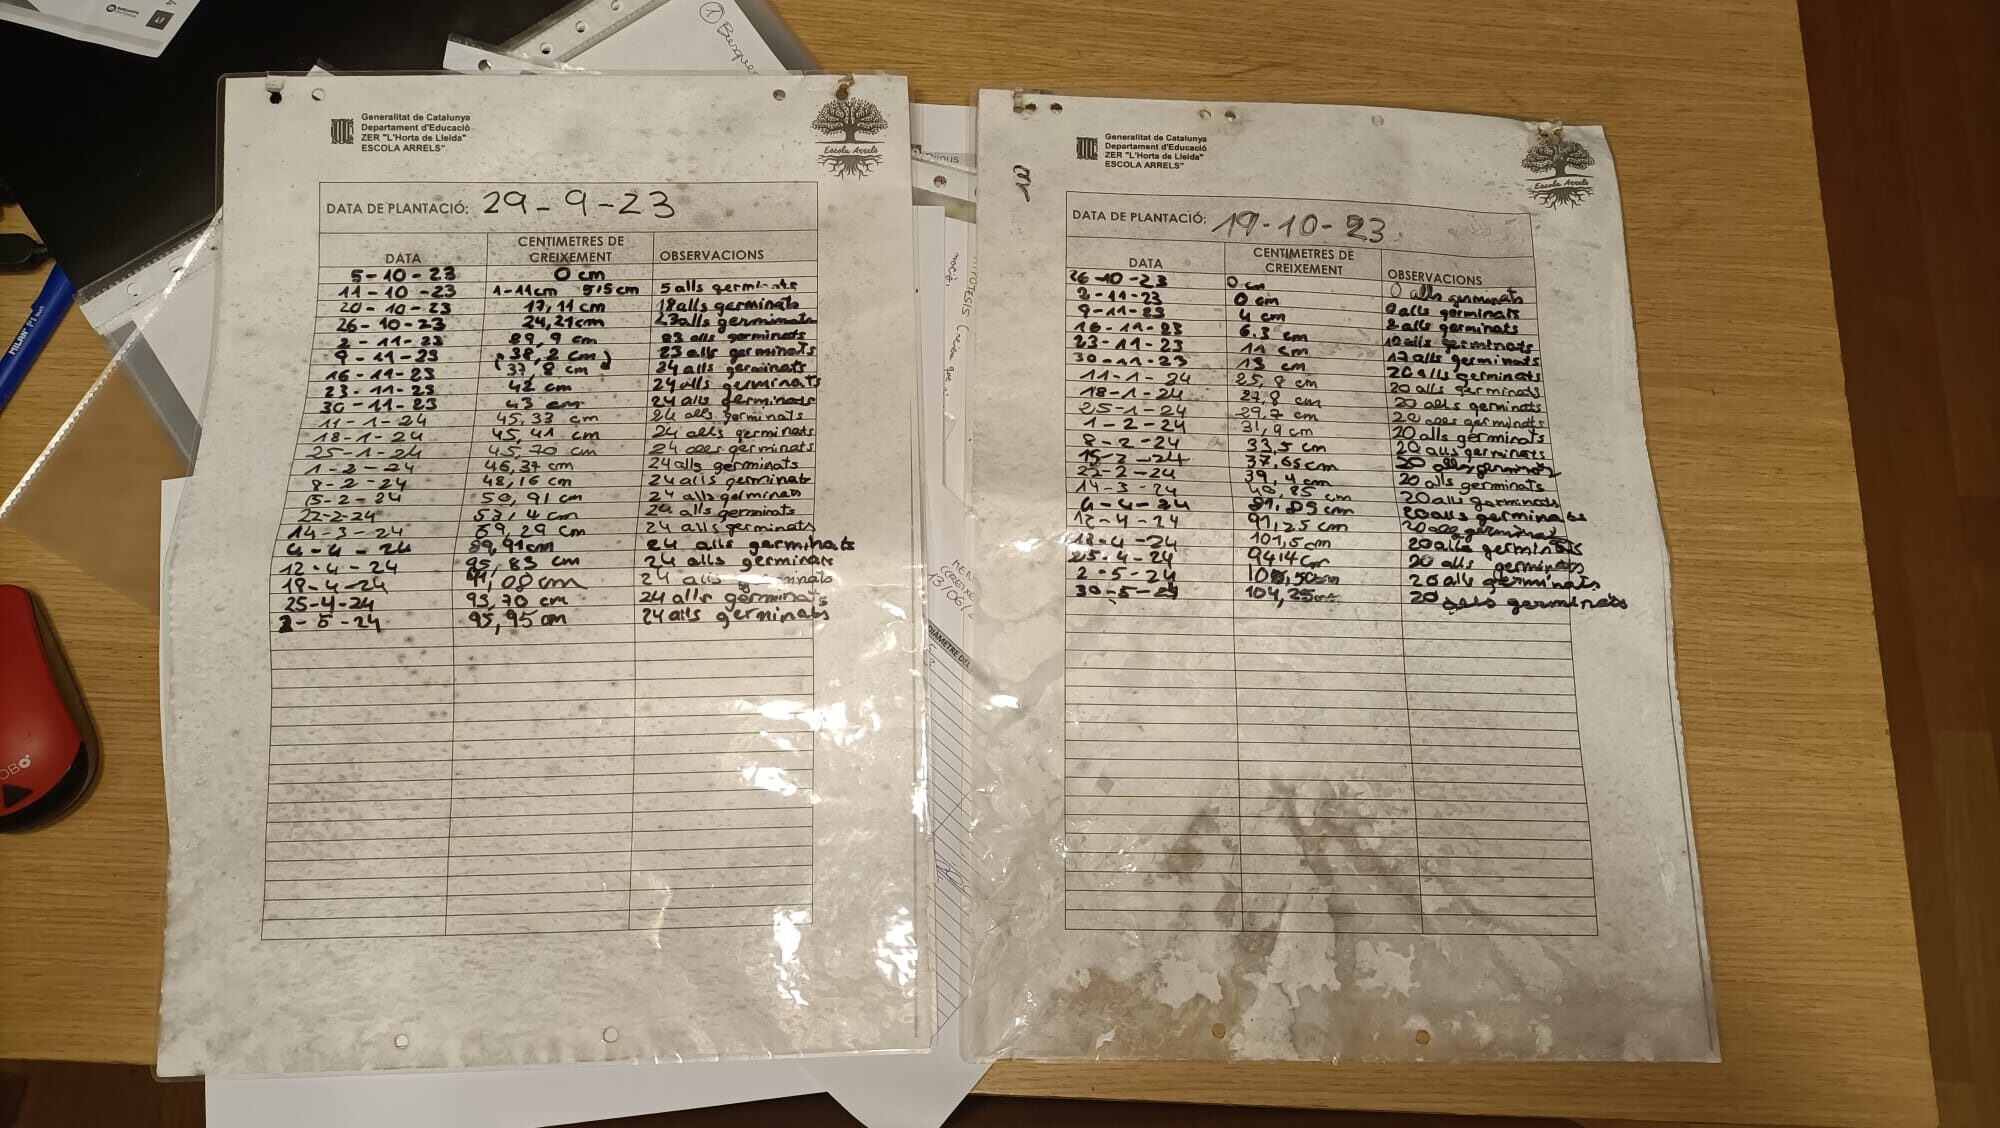 Generalitat de Catalunya
Departament d'Educació
ZER "L'Horta de Lleida"
ESCOLA ARRELS"
Escola Arrels
DATA DE PLANTACIÓ: 29-9-23
DATA CENTIMETRES DE CREIXEMENT OBSERVACIONS
5-10-23 0 cm
11-10-23 1-11cm 5,5cm 5 alls germinats
20-10-23 17,11 cm 18 alls germinats
26-10-23 24,21cm 23 alls germinats
2-11-23 29,9 cm 23 alls germinats
9-11-23 (38,2 cm) 23 alls germinats
16-11-23 37,8 cm 24 alls germinats
23-11-23 42 cm 24 alls germinats
30-11-23 43 cm 24 alls germinats
11-1-24 45,33 cm 24 alls germinats
18-1-24 45,41 cm 24 alls germinats
25-1-24 45,70 cm 24 alls germinats
1-2-24 46,37 cm 24 alls germinats
8-2-24 48,16 cm 24 alls germinats
15-2-24 50,91 cm 24 alls germinats
22-2-24 53,4 cm 24 alls germinats
14-3-24 69,29 cm 24 alls germinats
4-4-24 89,91cm 24 alls germinats
12-4-24 95,83 cm 24 alls germinats
18-4-24 91,08 cm 24 alls germinats
25-4-24 93,70 cm 24 alls germinats
2-5-24 95,95 cm 24 alls germinats
Generalitat de Catalunya
Departament d'Educació
ZER "L'Horta de Lleida"
ESCOLA ARRELS"
Escola Arrels
DATA DE PLANTACIÓ: 19-10-23
DATA CENTIMETRES DE CREIXEMENT OBSERVACIONS
26-10-23 0 cm 0 alls germinats
2-11-23 0 cm 0 alls germinats
9-11-23 4 cm 2 alls germinats
16-11-23 6,3 cm 12 alls germinats
23-11-23 11 cm 17 alls germinats
30-11-23 13 cm 20 alls germinats
11-1-24 25,8 cm 20 alls germinats
18-1-24 27,8 cm 20 alls germinats
25-1-24 29,7 cm 20 alls germinats
1-2-24 31,9 cm 20 alls germinats
8-2-24 33,5 cm 20 alls germinats
15-2-24 37,65cm 20 alls germinats
22-2-24 39,4 cm 20 alls germinats
14-3-24 40,85 cm 20 alls germinats
4-4-24 cm 20 alls germinats
12-4-24 91,25 cm 20 alls germinats
18-4-24 101,5cm 20 alls germinats
25-4-24 94,4cm 20 alls germinats
2-5-24 20 alls germinats
30-5-24 104,25cm 20 alls germinats
DIÀMETRE DEL